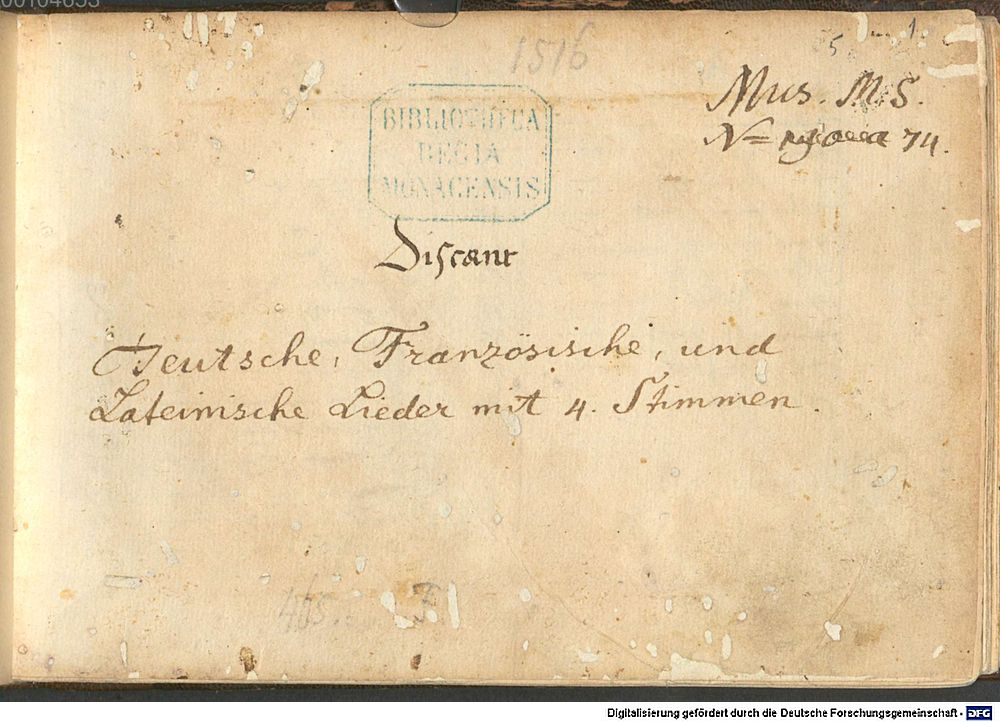 00104633
5 1.
1516
Mus. M.S.
N= 74.
BIBLIOTHECA
REGIA
MONACENSIS
Discant
Teutsche, Französische, und
Lateinische Lieder mit 4. Stimmen.
465. F
Digitalisierung gefördert durch die Deutsche Forschungsgemeinschaft - DFG